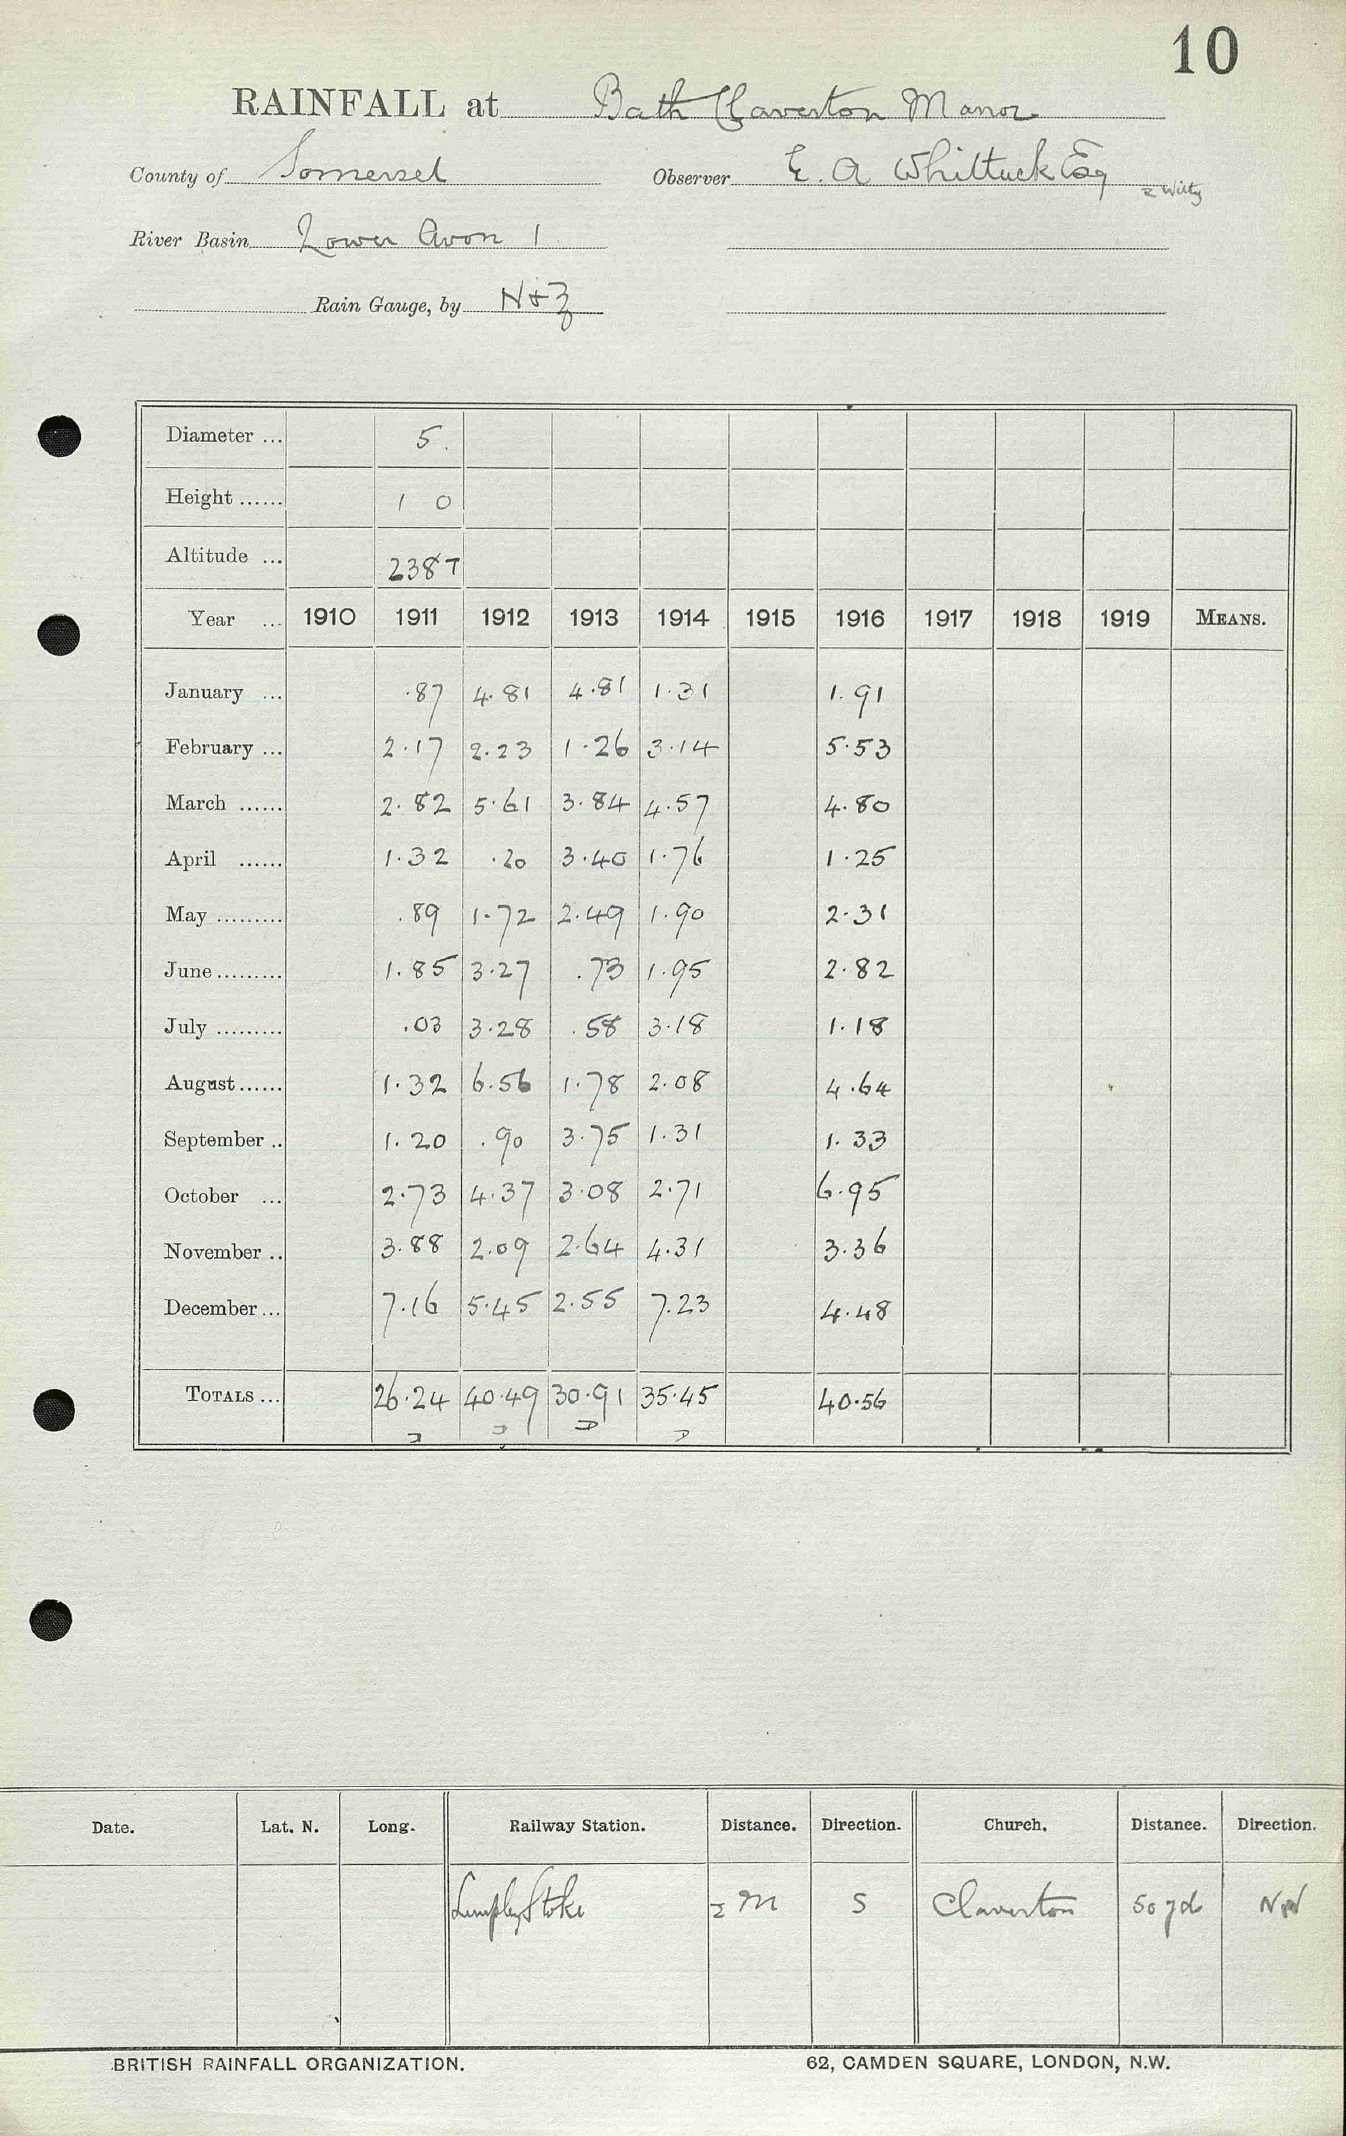 10
RAINFALL at Bath Claverton Manor
County of Somerset Observer E. A Whittuck Esq
River Basin Lower Avon 1
Rain Gauge, by N+Z
Diameter ... 5.
Height ...... 1 0
Altitude ... 238 T
Year ... 1910 1911 1912 1913 1914 1915 1916 1917 1918 1919 MEANS.
January ... .87 4.81 4.81 1.31 1.91
February ... 2.17 2.23 1.26 3.14 5.53
March ...... 2.82 5.61 3.84 4.57 4.80
April ...... 1.32 .20 3.40 1.76 1.25
May ......... .89 1.72 2.49 1.90 2.31
June ......... 1.85 3.27 .73 1.95 2.82
July ......... .03 3.28 .58 3.18 1.18
August ...... 1.32 6.56 1.78 2.08 4.64
September .. 1.20 .90 3.75 1.31 1.33
October ... 2.73 4.37 3.08 2.71 6.95
November .. 3.88 2.09 2.64 4.31 3.36
December ... 7.16 5.45 2.55 7.23 4.48
TOTALS ... 26.24 40.49 30.91 35.45 40.56
Date. Lat. N. Long. Railway Station. Distance. Direction. Church. Distance. Direction.
Limpley Stoke M S Claverton 50 yds NW
BRITISH RAINFALL ORGANIZATION. 62, CAMDEN SQUARE, LONDON, N.W.